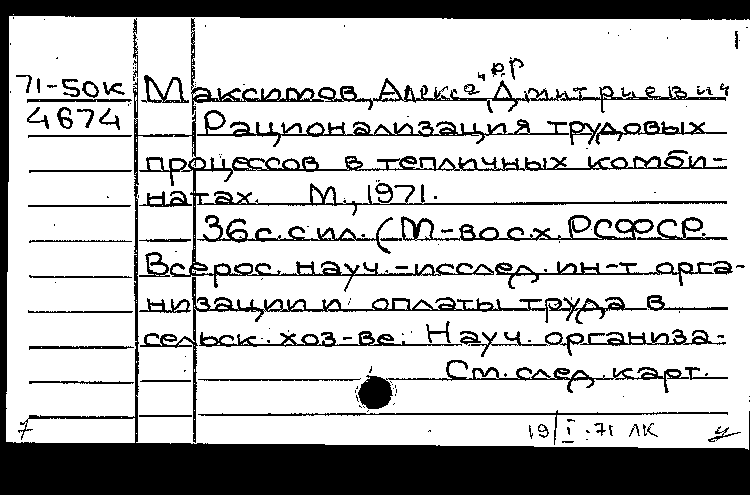 1
71-50к Максимов, Александр Дмитриевич
4674 Рационализация трудовых
процессов в тепличных комби-
натах. М., 1971.
36 с. с ил. (М-во с.х. РСФСР.
Всерос. науч.-исслед. ин-т орга-
низации и оплаты труда в
сельск. хоз-ве. Науч. организа-
См. след. карт.
7 19/I-71 ЛК